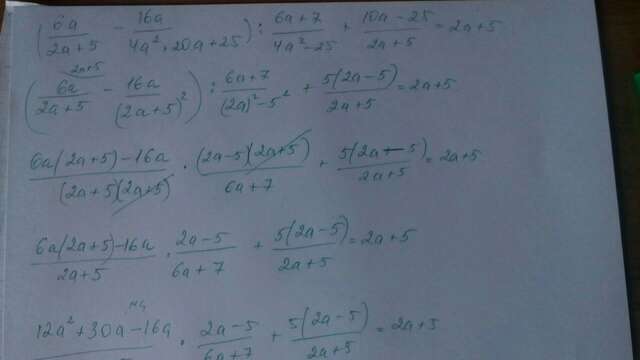 (6a/(2a+5) - 16a/(4a²+20a+25)) : (6a+7)/(4a²-25) + (10a-25)/(2a+5) = 2a+5
2a+5
(6a/(2a+5) - 16a/(2a+5)²) : (6a+7)/((2a)²-5²) + 5(2a-5)/(2a+5) = 2a+5
(6a(2a+5)-16a)/((2a+5)(2a+5)) · (2a-5)(2a+5)/(6a+7) + 5(2a-5)/(2a+5) = 2a+5
(6a(2a+5)-16a)/(2a+5) · (2a-5)/(6a+7) + 5(2a-5)/(2a+5) = 2a+5
(12a²+30a-16a)/ · (2a-5)/(6a+7) + 5(2a-5)/(2a+5) = 2a+5